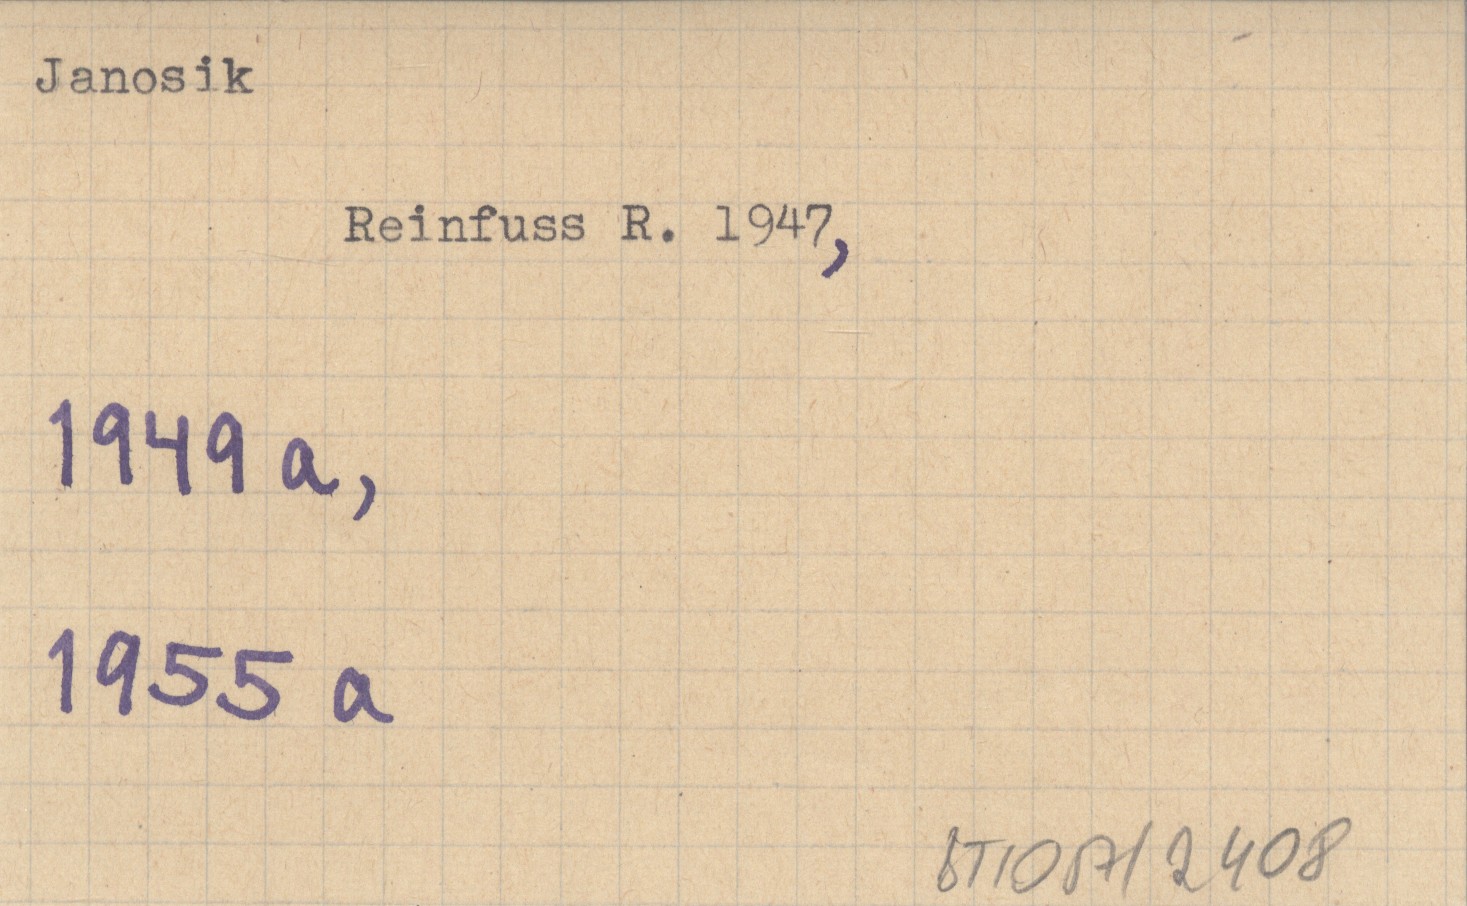 Janosik
Reinfuss R. 1947,
1949 a,
1955 a
2408